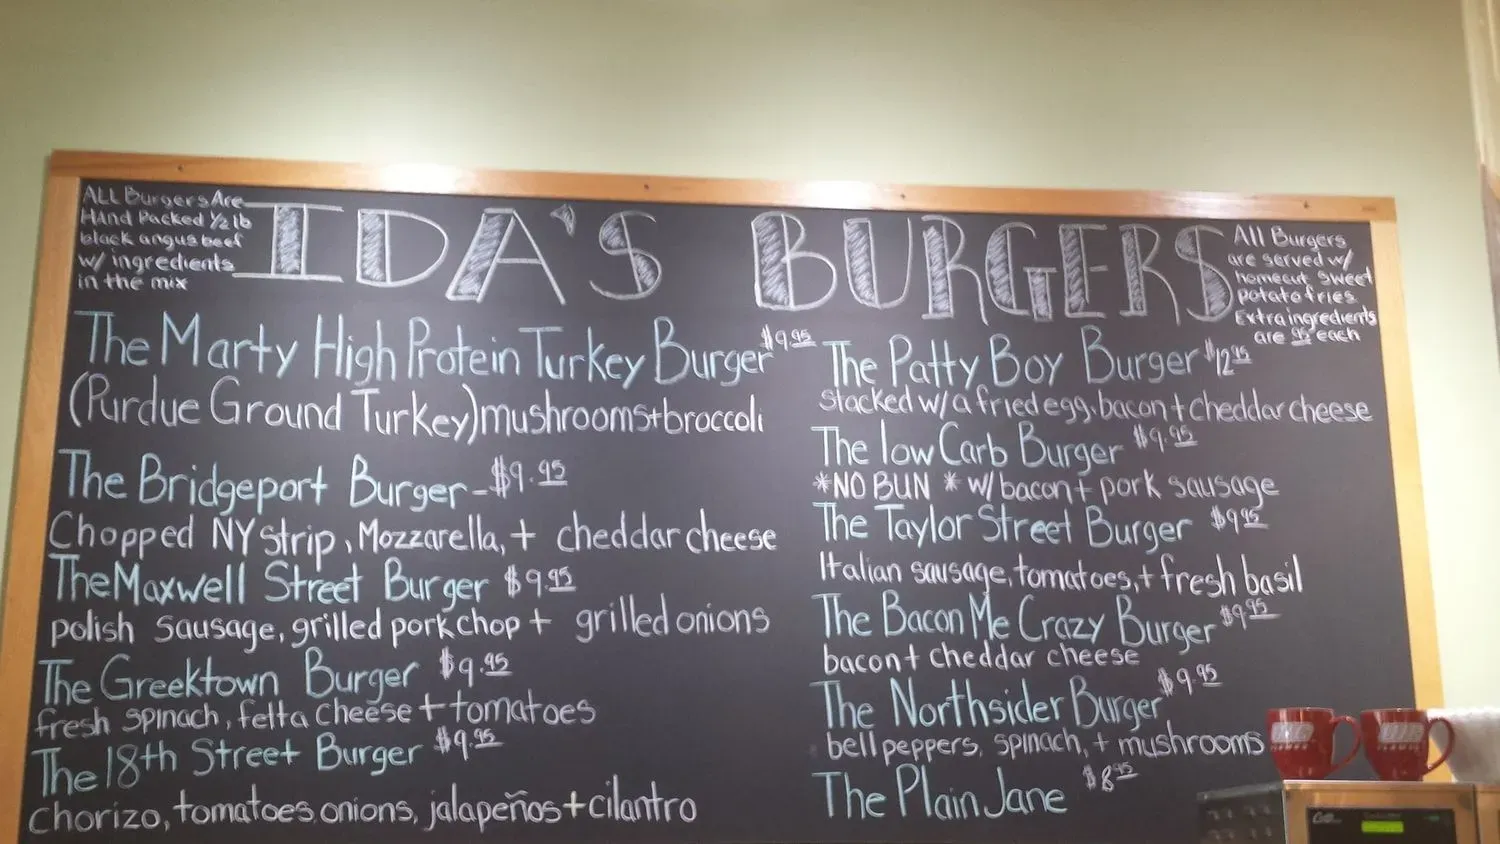 ALL Burgers Are
Hand Packed ½ lb
black angus beef
w/ ingredients
in the mix
IDA'S BURGERS
All Burgers
are served w/
homecut sweet
potato fries
Extra ingredients
are 95 each
The Marty High Protein Turkey Burger $9.95
(Purdue Ground Turkey) mushrooms + broccoli
The Bridgeport Burger - $9.95
Chopped NY strip, Mozzarella, + cheddar cheese
The Maxwell Street Burger $9.95
polish sausage, grilled pork chop + grilled onions
The Greektown Burger $9.95
fresh spinach, felta cheese + tomatoes
The 18th Street Burger $9.95
Chorizo, tomatoes, onions, jalapeños + cilantro
The Patty Boy Burger $12.95
stacked w/ a fried egg, bacon + cheddar cheese
The low Carb Burger $9.95
*NO BUN * w/ bacon + pork sausage
The Taylor Street Burger $9.95
Italian sausage, tomatoes, + fresh basil
The Bacon Me Crazy Burger $9.95
bacon + cheddar cheese
The Northsider Burger $9.95
bell peppers, spinach, + mushrooms
The Plain Jane $8.95